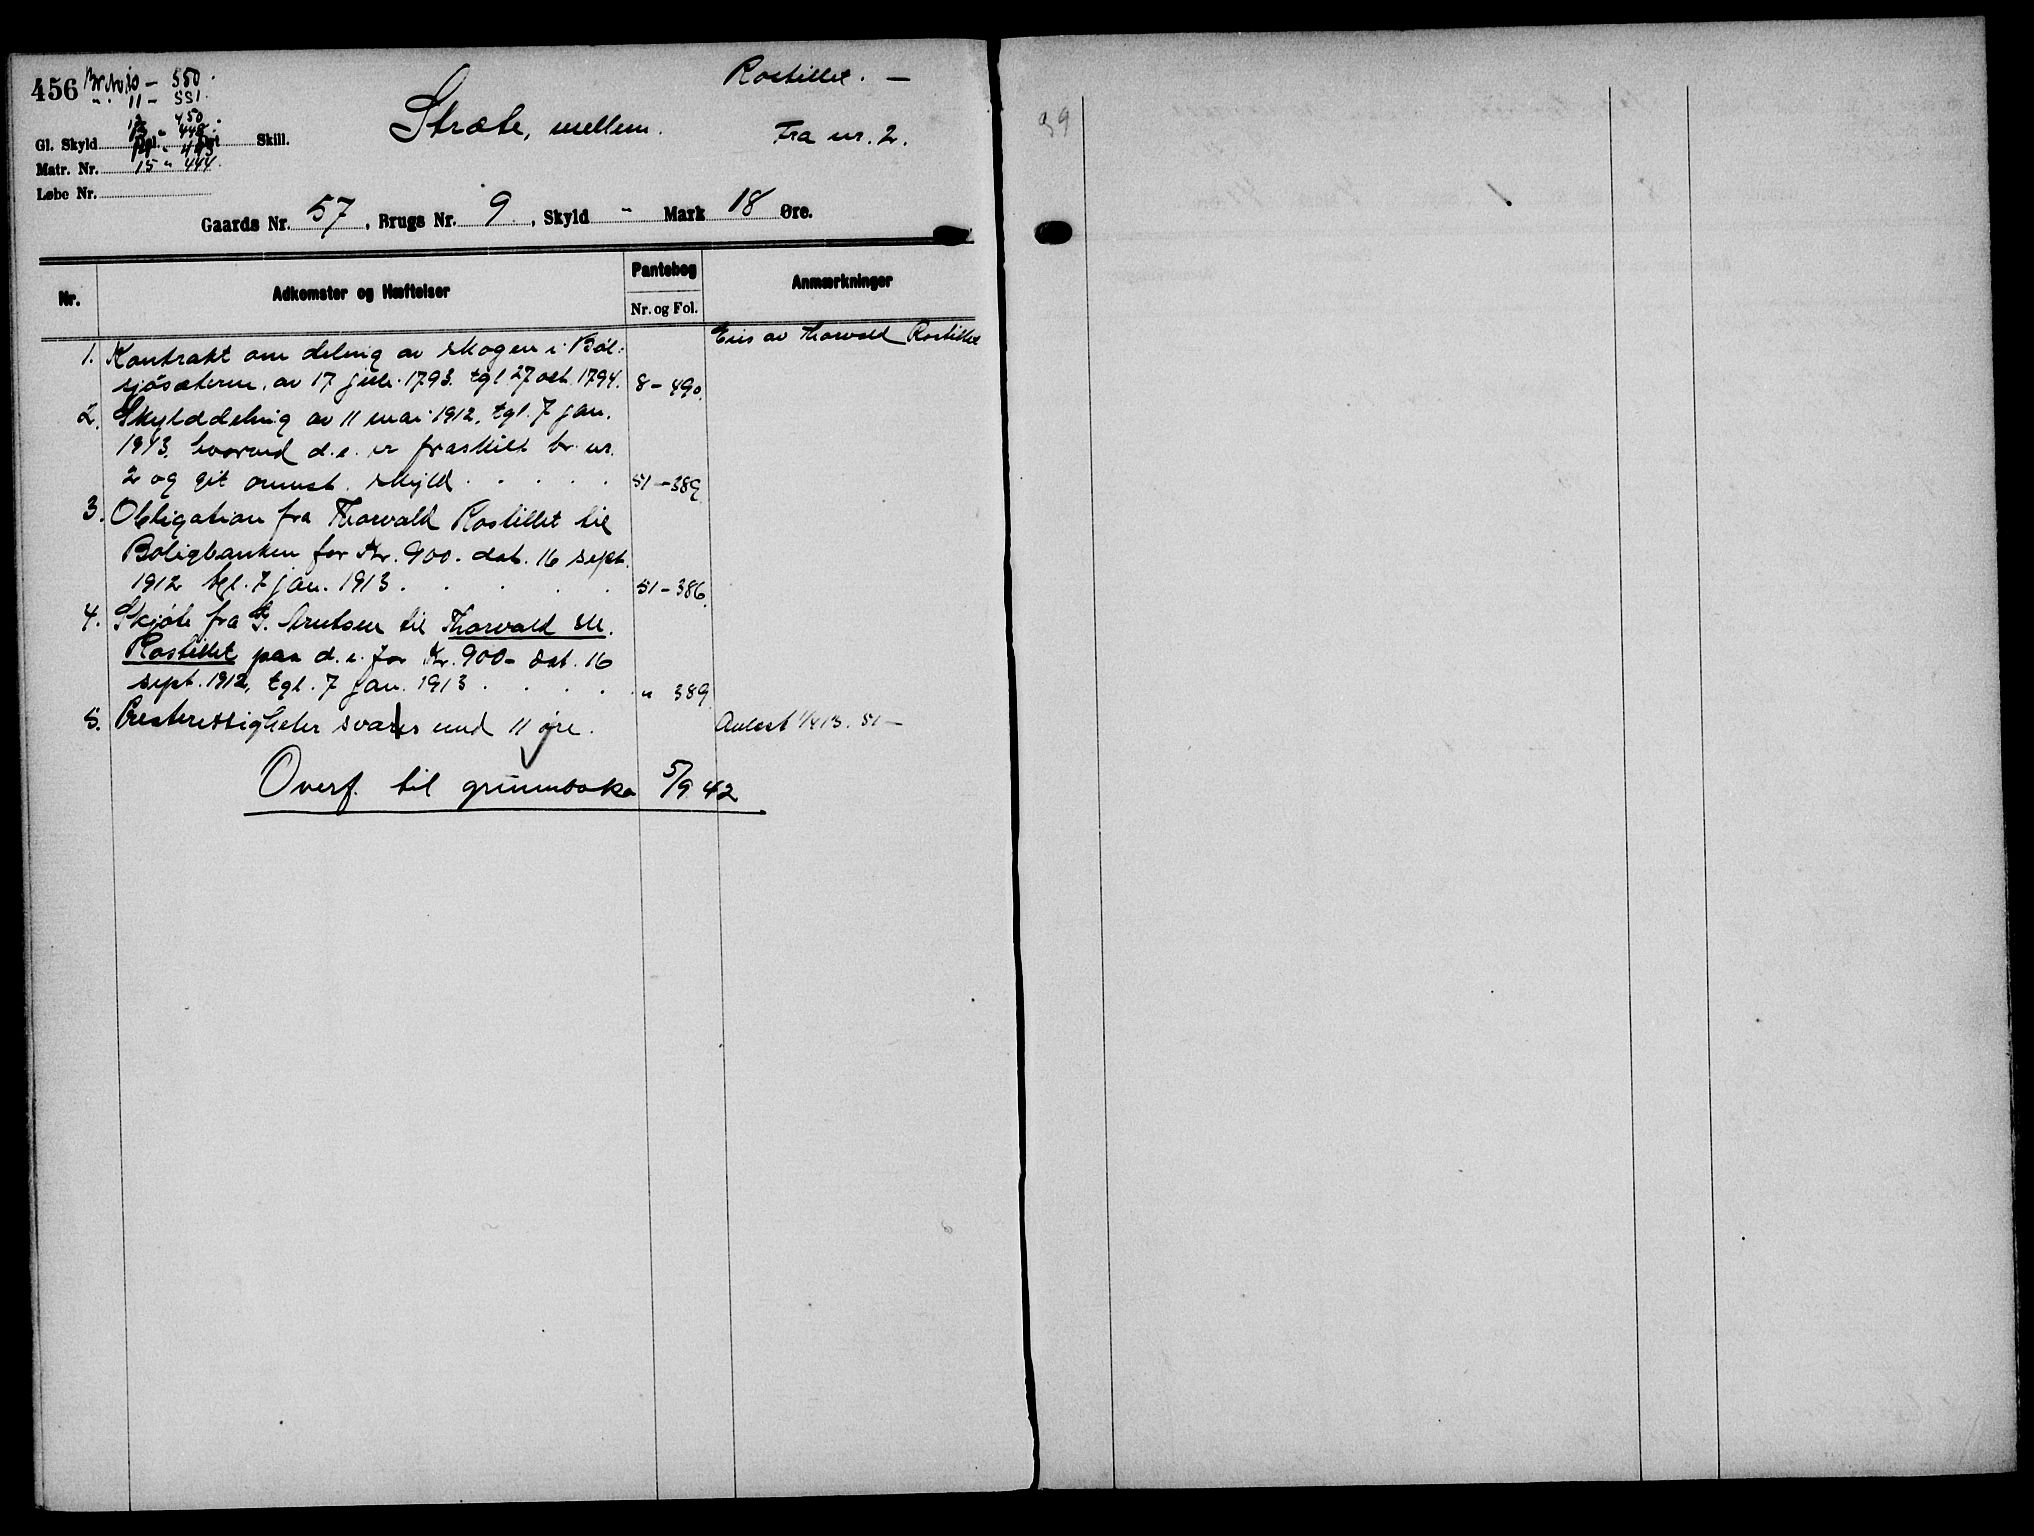 456 Br. Nr. 10 - 550.
" 11 - 551.
12 " 450.
13 " 448.
Gl. Skyld Skill.
Matr. Nr. 15 " 444.
Løbe Nr.
Rostillet. —
Stræte, mellem.
Fra nr. 2.
Gaards Nr. 57, Brugs Nr. 9, Skyld " Mark 18 Øre.
Nr. Adkomster og Hæftelser Pantebog Anmærkninger
Nr. og Fol.
Eies av Thorvald Rostillet
1. Kontrakt om deling av skogen i Böl-
sjösæteren, av 17 juli 1793. tgl 27 okt. 1794. 8 - 490.
2. Skylddeling av 11 mai 1912, tgl. 7 jan.
1913, hvorved d. e. er fraskilt br. nr.
2 og git ovennst. skyld . . . . . 51 - 389.
3. Obligation fra Thorvald Rostillet til
Boligbanken for Kr. 900. dat. 16 sept.
1912 tgl. 7 jan. 1913 . . . . . 51 - 386.
4. Skjøte fra G. Arntsen til Thorvald M.
Rostillet paa d. e. for Kr. 900 - dat. 16
sept. 1912, tgl. 7 jan. 1913 . . . . " 389
5. Presterettigheter svares med 11 øre. Avløst 1/4 13. 51 —
Overf. til grunnboka 5/9 42